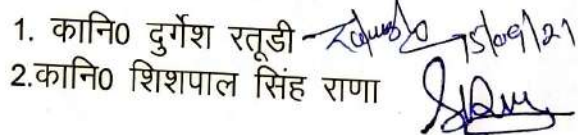 1. कानि0 दुर्गेश रतूडी 15/09/21
2.कानि0 शिशपाल सिंह राणा